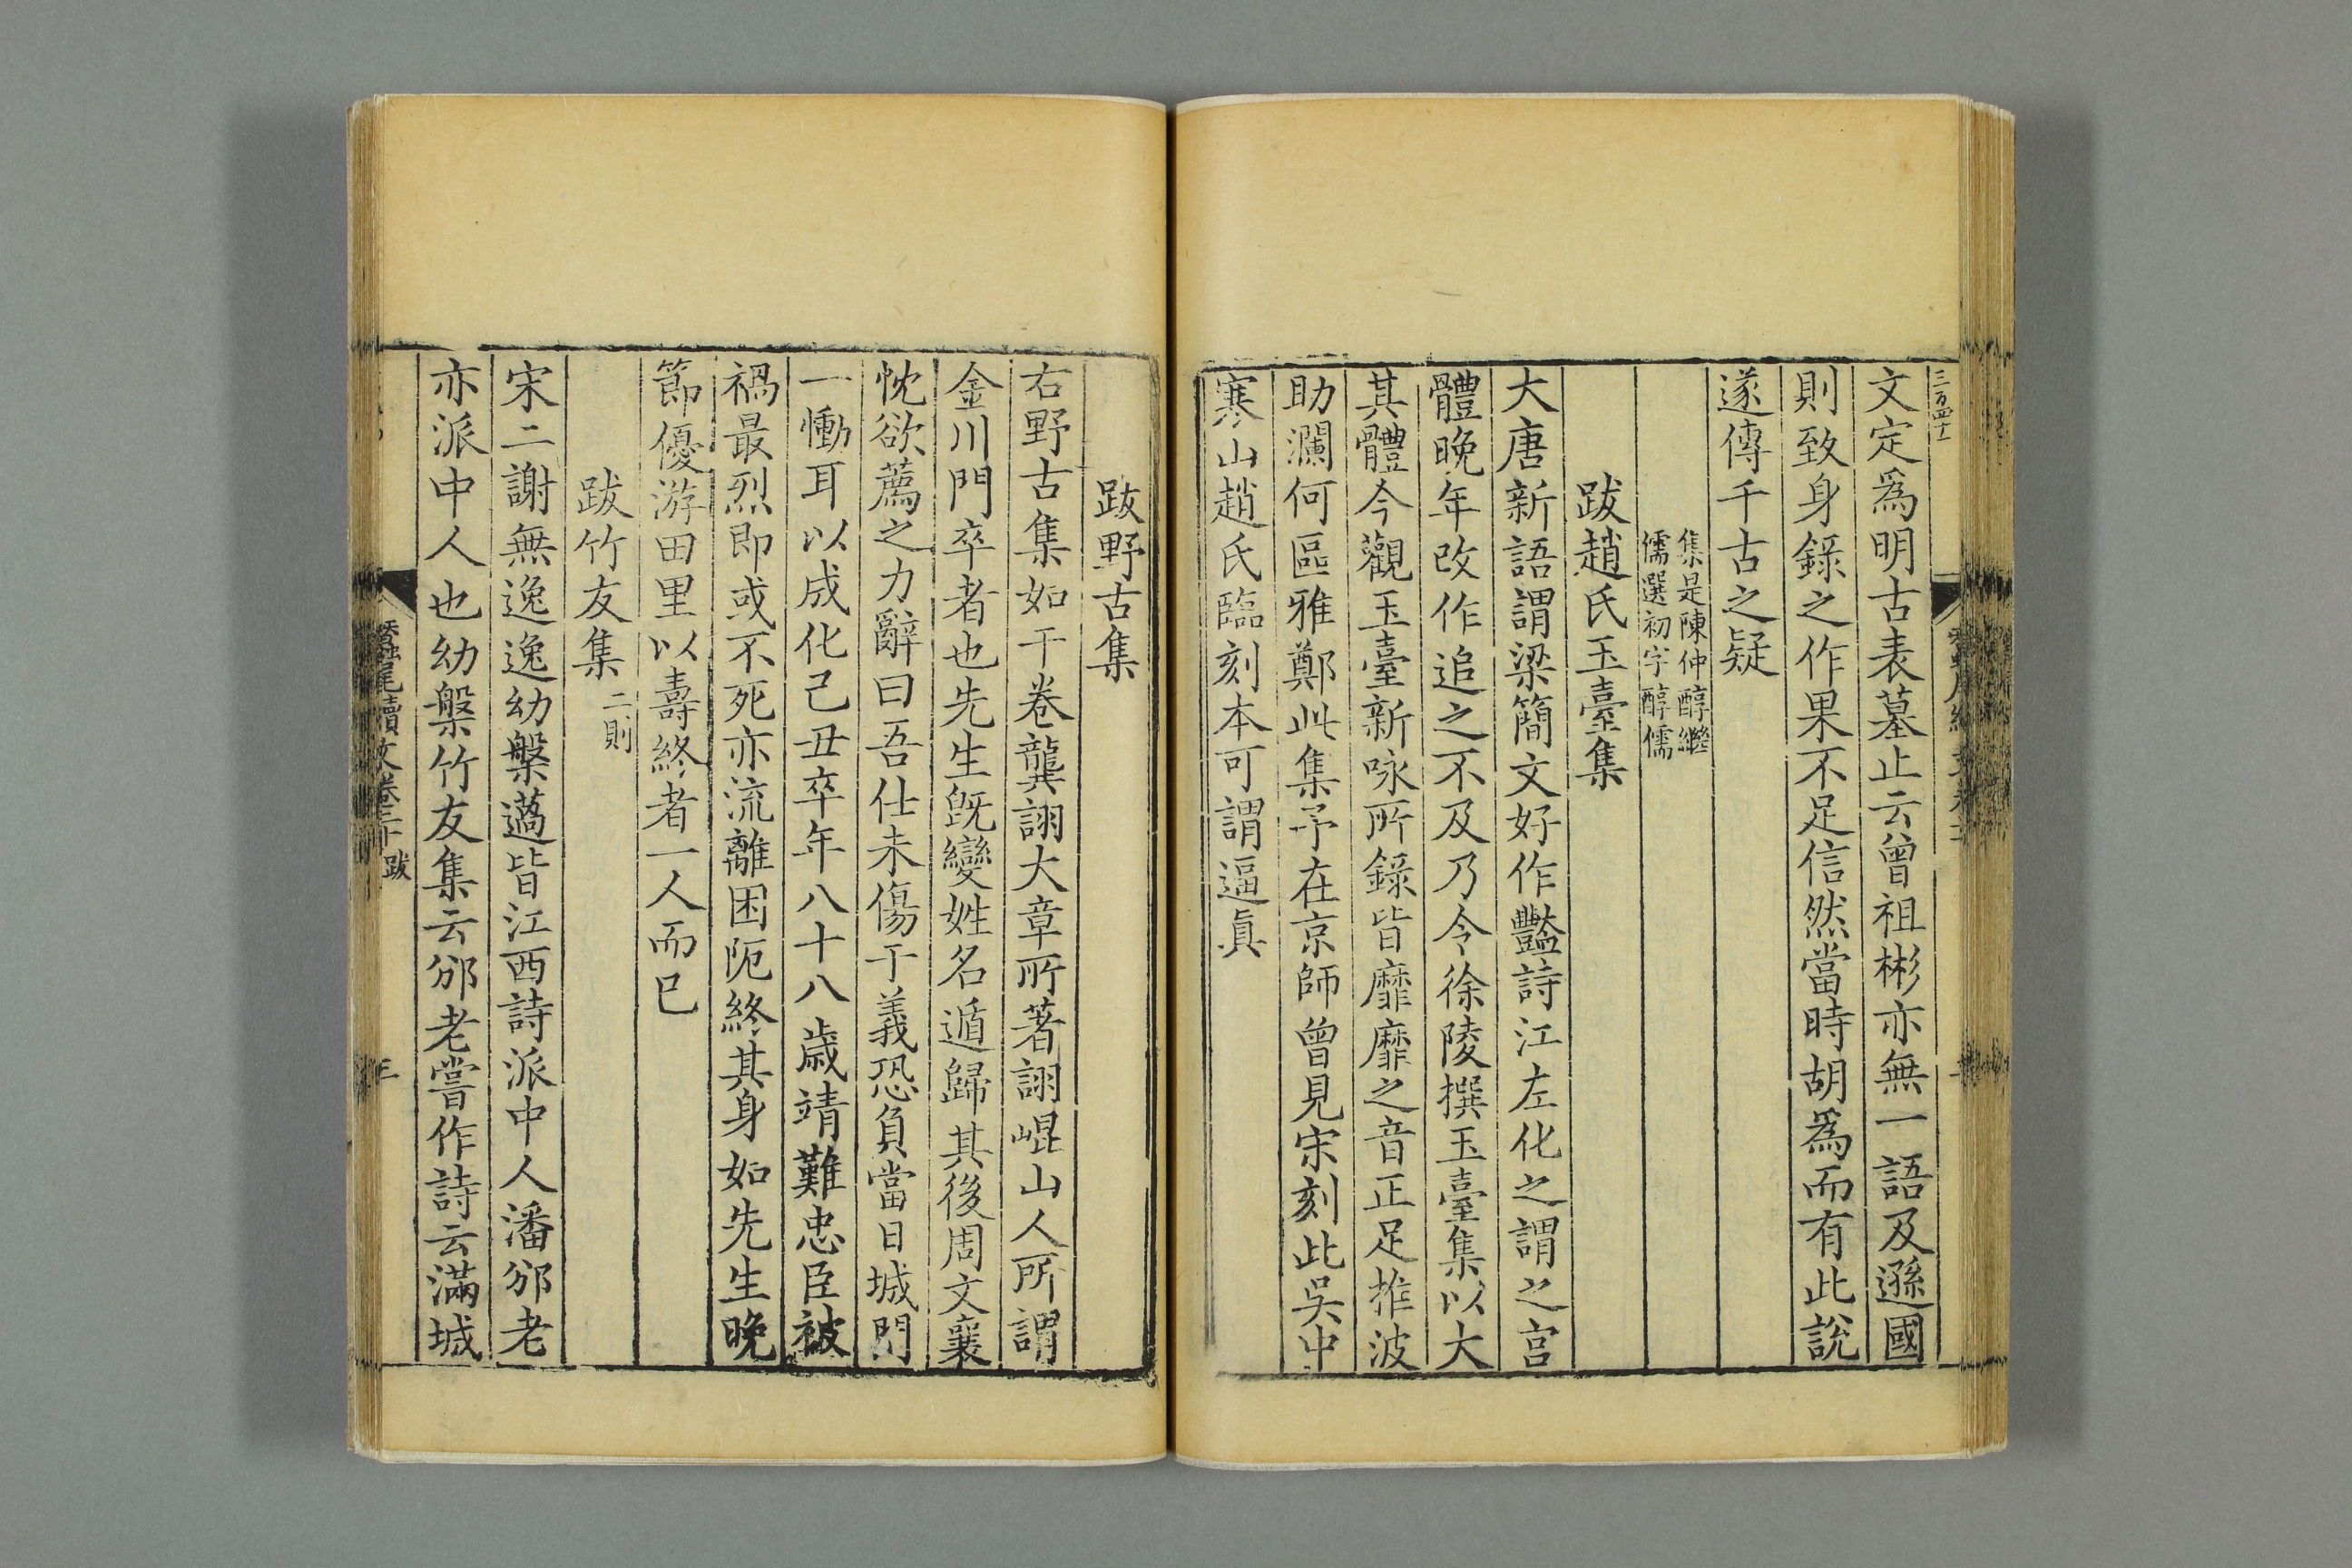 三百四十
文定爲明古表墓止云曾祖彬亦無一語及遜國
則致身錄之作果不足信然當時胡爲而有此說
遂傳千古之疑
集是陳仲醇繼
儒選初字醇儒
跋趙氏玉臺集
大唐新語謂梁簡文好作豔詩江左化之謂之宮
體晚年改作追之不及乃令徐陵撰玉臺集以大
其體今觀玉臺新咏所錄皆靡靡之音正足推波
助瀾何區雅鄭此集予在京師曾見宋刻此吳中
寒山趙氏臨刻本可謂逼眞
跋野古集
右野古集如干卷龔詡大章所著詡崐山人所謂
金川門卒者也先生旣變姓名遁歸其後周文襄
忱欲薦之力辭曰吾仕未傷于義恐負當日城門
一慟耳以成化己丑卒年八十八歲靖難忠臣被
禍最烈即或不死亦流離困阨終其身如先生晚
節優游田里以壽終者一人而已
跋竹友集 二則
宋二謝無逸逸幼槃薖皆江西詩派中人潘邠老
亦派中人也幼槃竹友集云邠老嘗作詩云滿城
蠶尾續文卷二十 跋